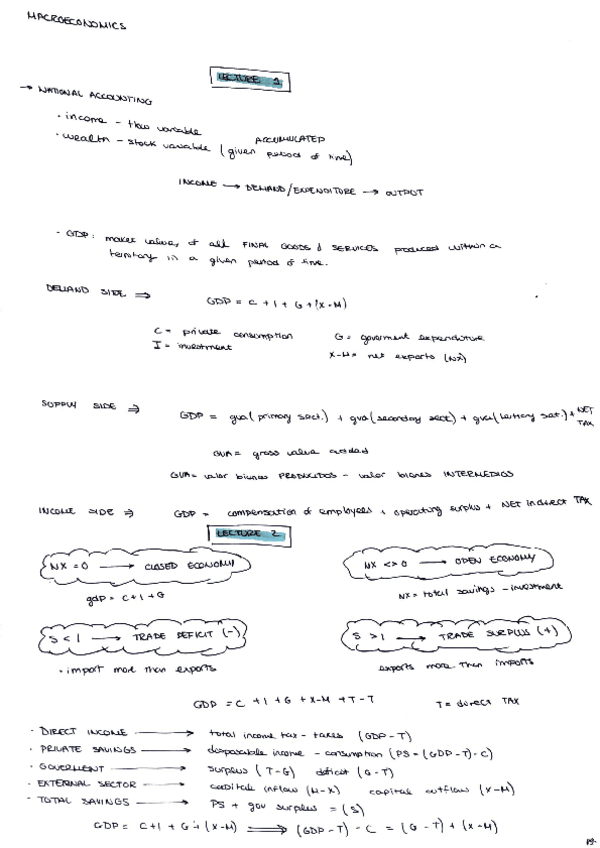 MACROECONOMICS
LECTURE 1
→ NATIONAL ACCOUNTING
· income - flow variable
· wealth - stock variable (given period of time)
ACCUMULATED
INCOME → DEMAND/EXPENDITURE → OUTPUT
- GDP: market value, of all FINAL GOODS & SERVICES produced within a
territory in a given period of time.
DEMAND SIDE ⇒ GDP = C + I + G + (X-M)
C = private consumption G = goverment expenditure
I = investment X-M = net exports (NX)
SUPPLY SIDE ⇒ GDP = gva(primary sect.) + gva(secondary sect) + gva(tertiary sat.) + NET TAX
GVA = gross value added
GVA = valor bienes PRODUCIDOS - valor bienes INTERMEDIOS
INCOME SIDE ⇒ GDP = compensation of employees + operating surplus + NET indirect TAX
LECTURE 2
NX = 0 → CLOSED ECONOMY NX <> 0 → OPEN ECONOMY
gdp = C+I+G NX = total savings - investment
S < I → TRADE DEFICIT (-) S > I → TRADE SURPLUS (+)
· import more than exports exports more than imports
GDP = C + I + G + X-M + T - T T = direct TAX
· DIRECT INCOME → total income tax - taxes (GDP - T)
· PRIVATE SAVINGS → disposable income - consumption (PS = (GDP-T) - C)
· GOVERMENT → surplus (T-G) deficit (G-T)
· EXTERNAL SECTOR → capital inflow (M-X) capital outflow (X-M)
· TOTAL SAVINGS → PS + gov surplus = (S)
GDP = C+I + G + (X-M) ⇒ (GDP-T) - C = (G-T) + (X-M)